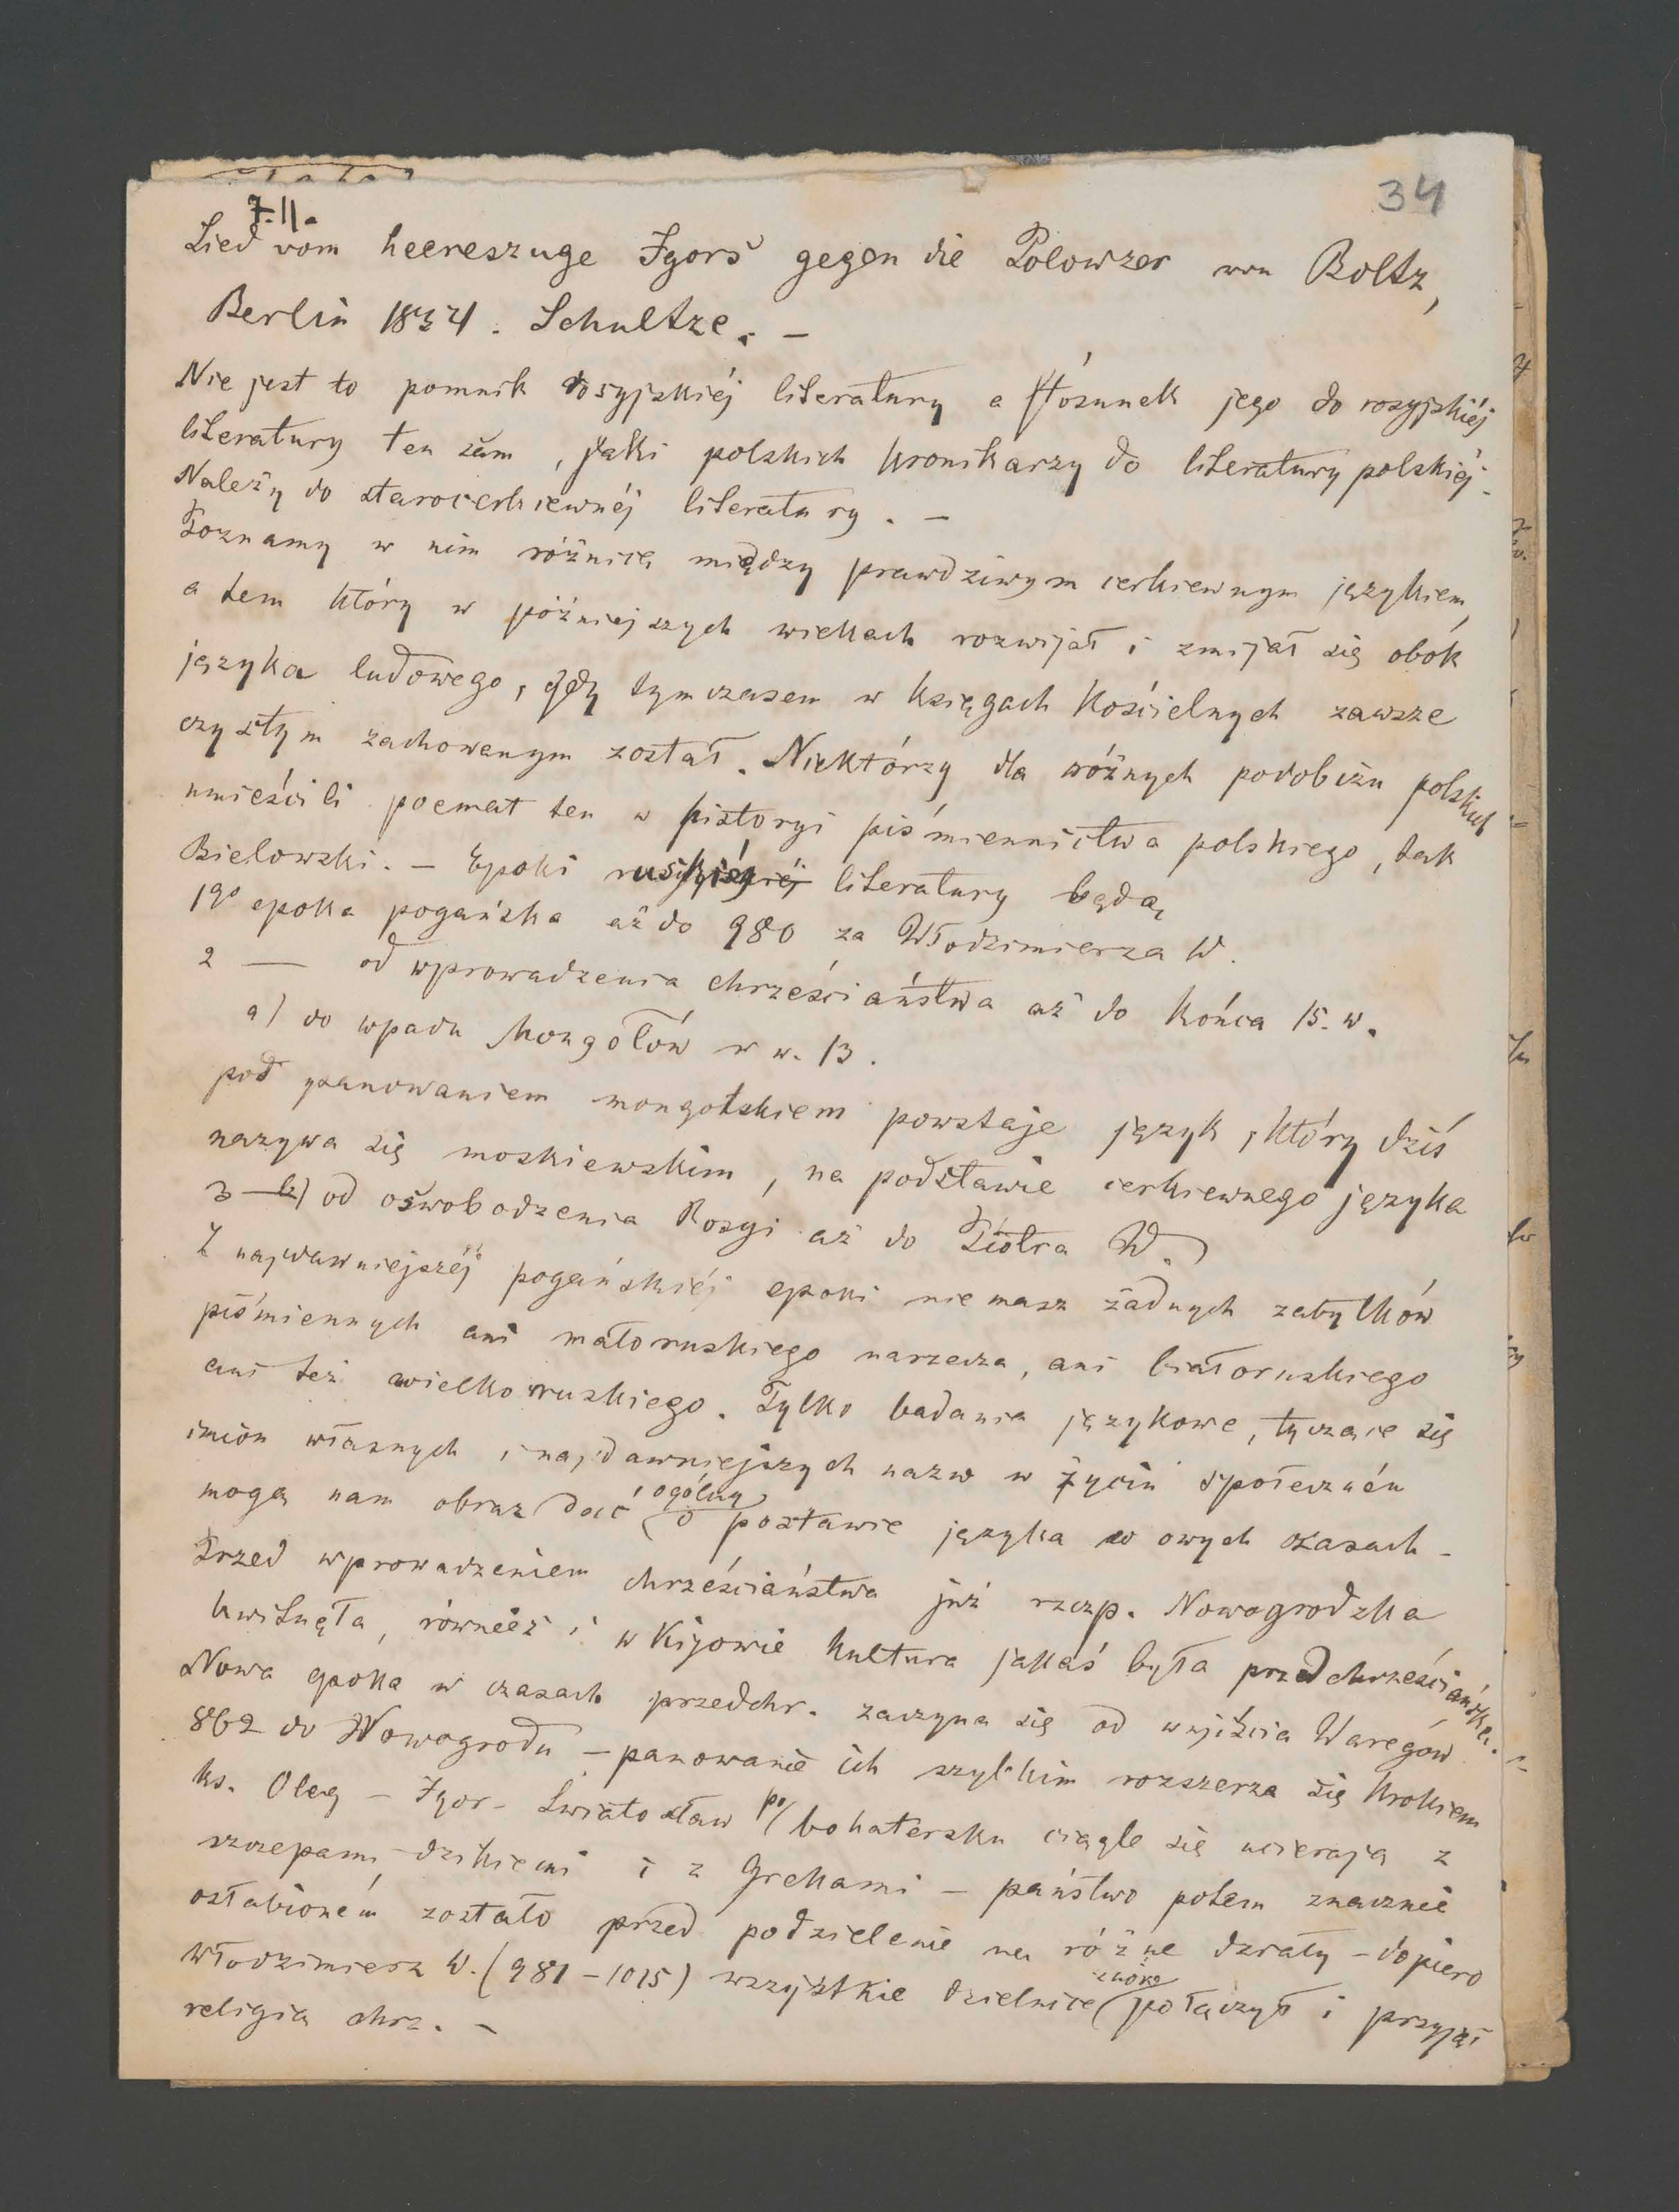 34
7.II.
Lied vom heereszuge Igorś gegen die Polowzer von Boltz,
Berlin 1854. Schultze. –
Nie jest to pomnik rosyjskiéj literatury a stósunek jego do rosyjskiéj
literatury ten sam, jaki polskich kronikarzy do literatury polskiéj.
Należy do starocerkiewnéj literatury. –
Poznamy w nim różnicę między prawdziwym cerkiewnym językiem,
a tem który w późniejszych wiekach rozwijał i zmijał się obok
języka ludowego, gdy tymczasem w księgach kościelnych zawsze
czystym zachowanym został. Niektórzy dla różnych podobizn polskich
umieścili poemat ten w historyi piśmiennictwa polskiego, tak
Bielowski. – Epoki ruskiéj literatury będą
1go epoka pogańska aż do 980 za Włodzimierza W.
2 — od wprowadzenia chrześciaństwa aż do końca 15. w.
a) do wpadu Mongołów w w. 13.
pod panowaniem mongolskiem powstaje język, który dziś
nazywa się moskiewskim, na podstawie cerkiewnego języka
3 — b) od oswobodzenia Rosyi aż do Piotra W.
Z najdawniejszéj pogańskiéj epoki nie masz żadnych zabytków
piśmiennych ani małoruskiego narzecza, ani białoruskiego
ani też wielkoruskiego. Tylko badania językowe, tyczące się
imion własnych i najdawniejszych nazw w życiu społeczném
mogą nam obraz dać ogólny o postawie języka w owych czasach –
Przed wprowadzeniem chrześciaństwa już rzczp. Nowogrodzka
kwitnęła, równeież i w Kijowie kultura jakaś była przedchrześciańska.
Nowa epoka w czasach przedchr. zaczyna się od wnijścia Waregów
862 do Nowogrodu – panowanie ich szybkim rozszerza się krokiem
ks. Oleg – Igor – Swiatosław po bohatersku ciągle się ucierają z
szczepami dzikiemi i z Grekami – państwo potem znacznie
osłabioném zostało przed podzielenie na różne działy – dopiero
Włodzimierz W. (981 – 1015) wszystkie dzielnice znowu połączył i przyjął
religią chrz. –